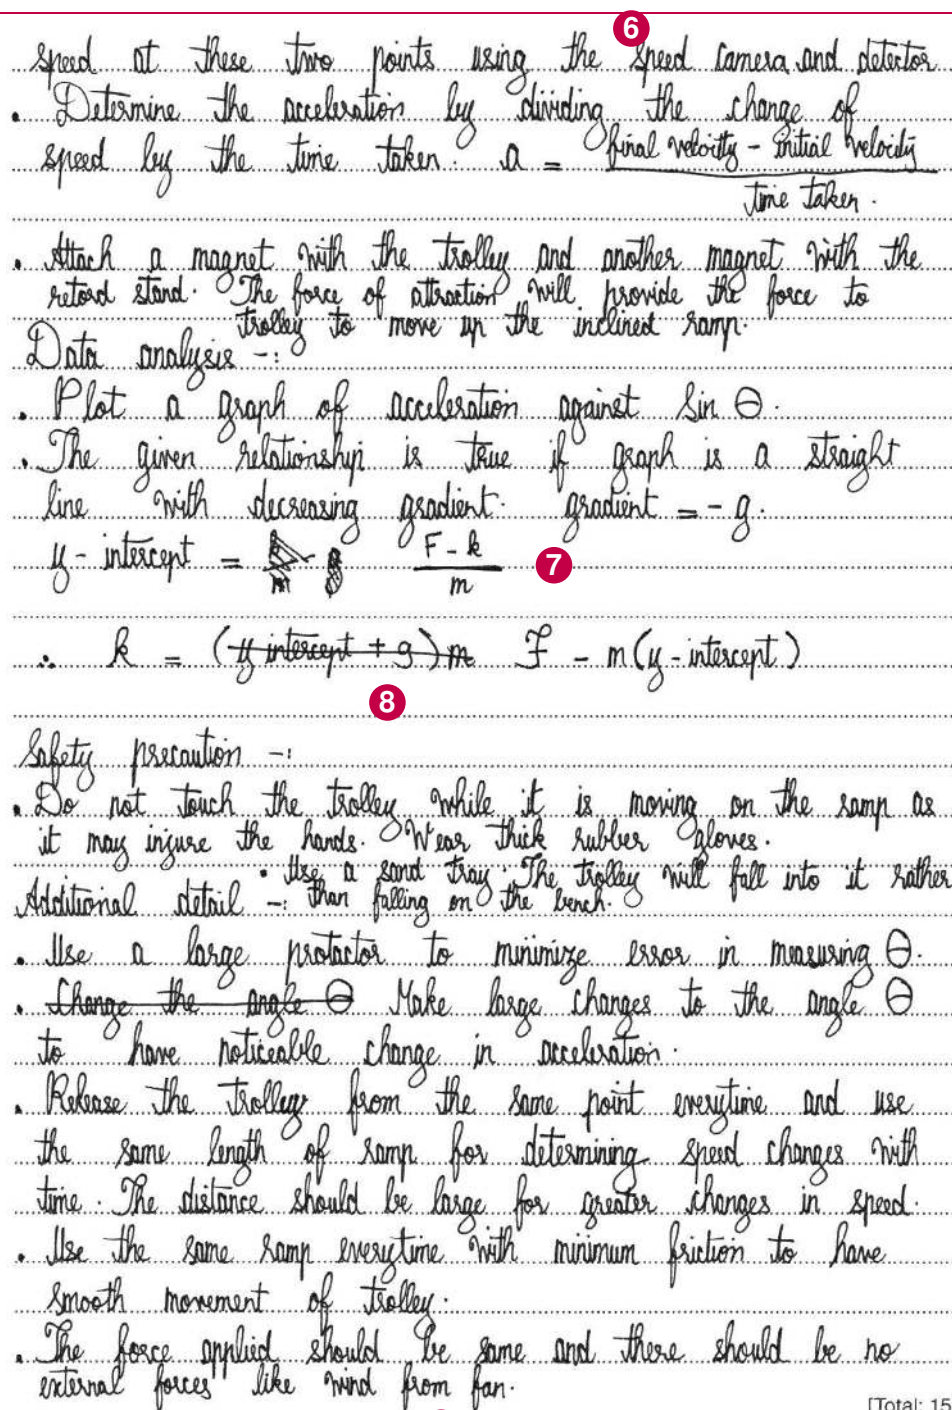 6
speed at these two points using the speed camera and detector
. Determine the acceleration by dividing the change of
speed by the time taken. a = final velocity - initial velocity
time taken.
. Attach a magnet with the trolley and another magnet with the
retord stand. The force of attraction will provide the force to
trolley to move up the inclined ramp.
Data analysis -:
. Plot a graph of acceleration against sin θ.
. The given relationship is true if graph is a straight
line with decreasing gradient. gradient = - g.
y - intercept = F - k 7
m
∴ k = (y intercept + g) m F - m (y - intercept)
8
Safety precaution -:
. Do not touch the trolley while it is moving on the ramp as
it may injure the hands. Wear thick rubber gloves.
. Use a sand tray. The trolley will fall into it rather
than falling on the bench.
Additional detail -:
. Use a large protactor to minimize error in measuring θ.
. Change the angle θ Make large changes to the angle θ
to have noticeable change in acceleration.
. Release the trolley from the same point everytime and use
the same length of ramp for determining speed changes with
time. The distance should be large for greater changes in speed.
. Use the same ramp everytime with minimum friction to have
smooth movement of trolley.
. The force applied should be same and there should be no
external forces like wind from fan.
[Total: 15